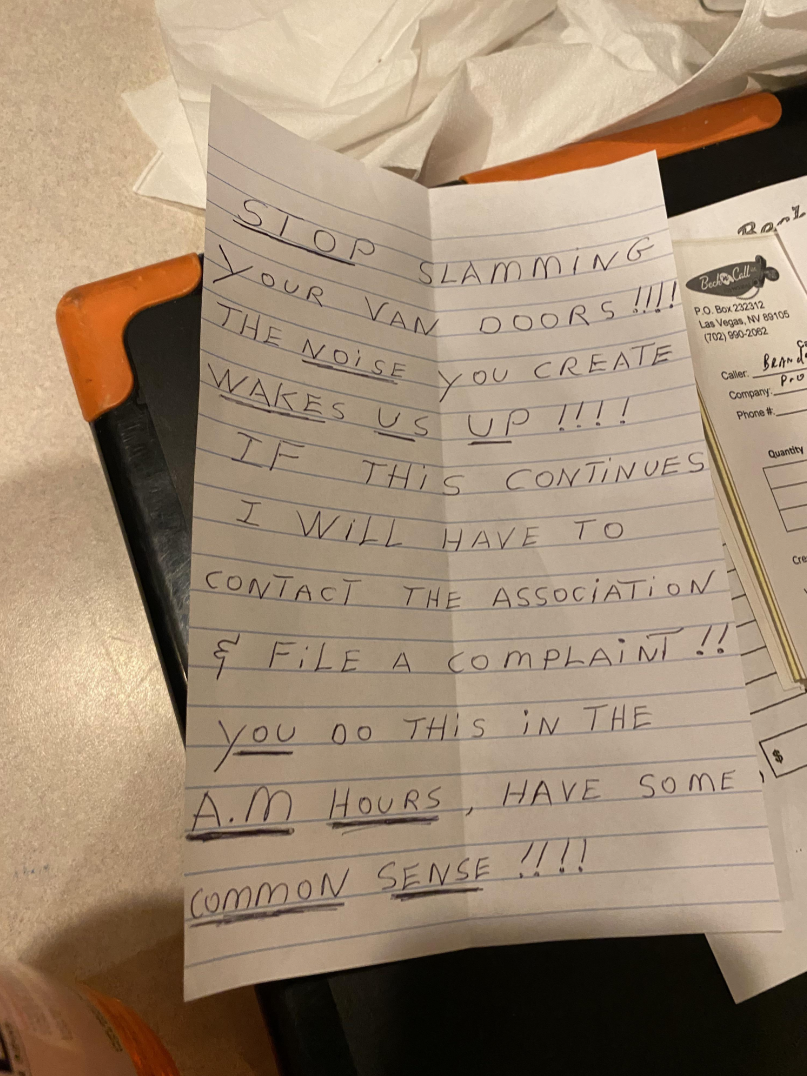 STOP SLAMMING
YOUR VAN DOORS!!!!
THE NOISE YOU CREATE
WAKES US UP !!!!
IF THIS CONTINUES
I WILL HAVE TO
CONTACT THE ASSOCIATION
& FILE A COMPLAINT !!
YOU DO THIS IN THE
A.M HOURS, HAVE SOME
COMMON SENSE !!!!
Beck Call
P.O. Box 232312
Las Vegas, NV 89105
(702) 990-2062
Caller:
Company:
Phone #:
Quantity
$